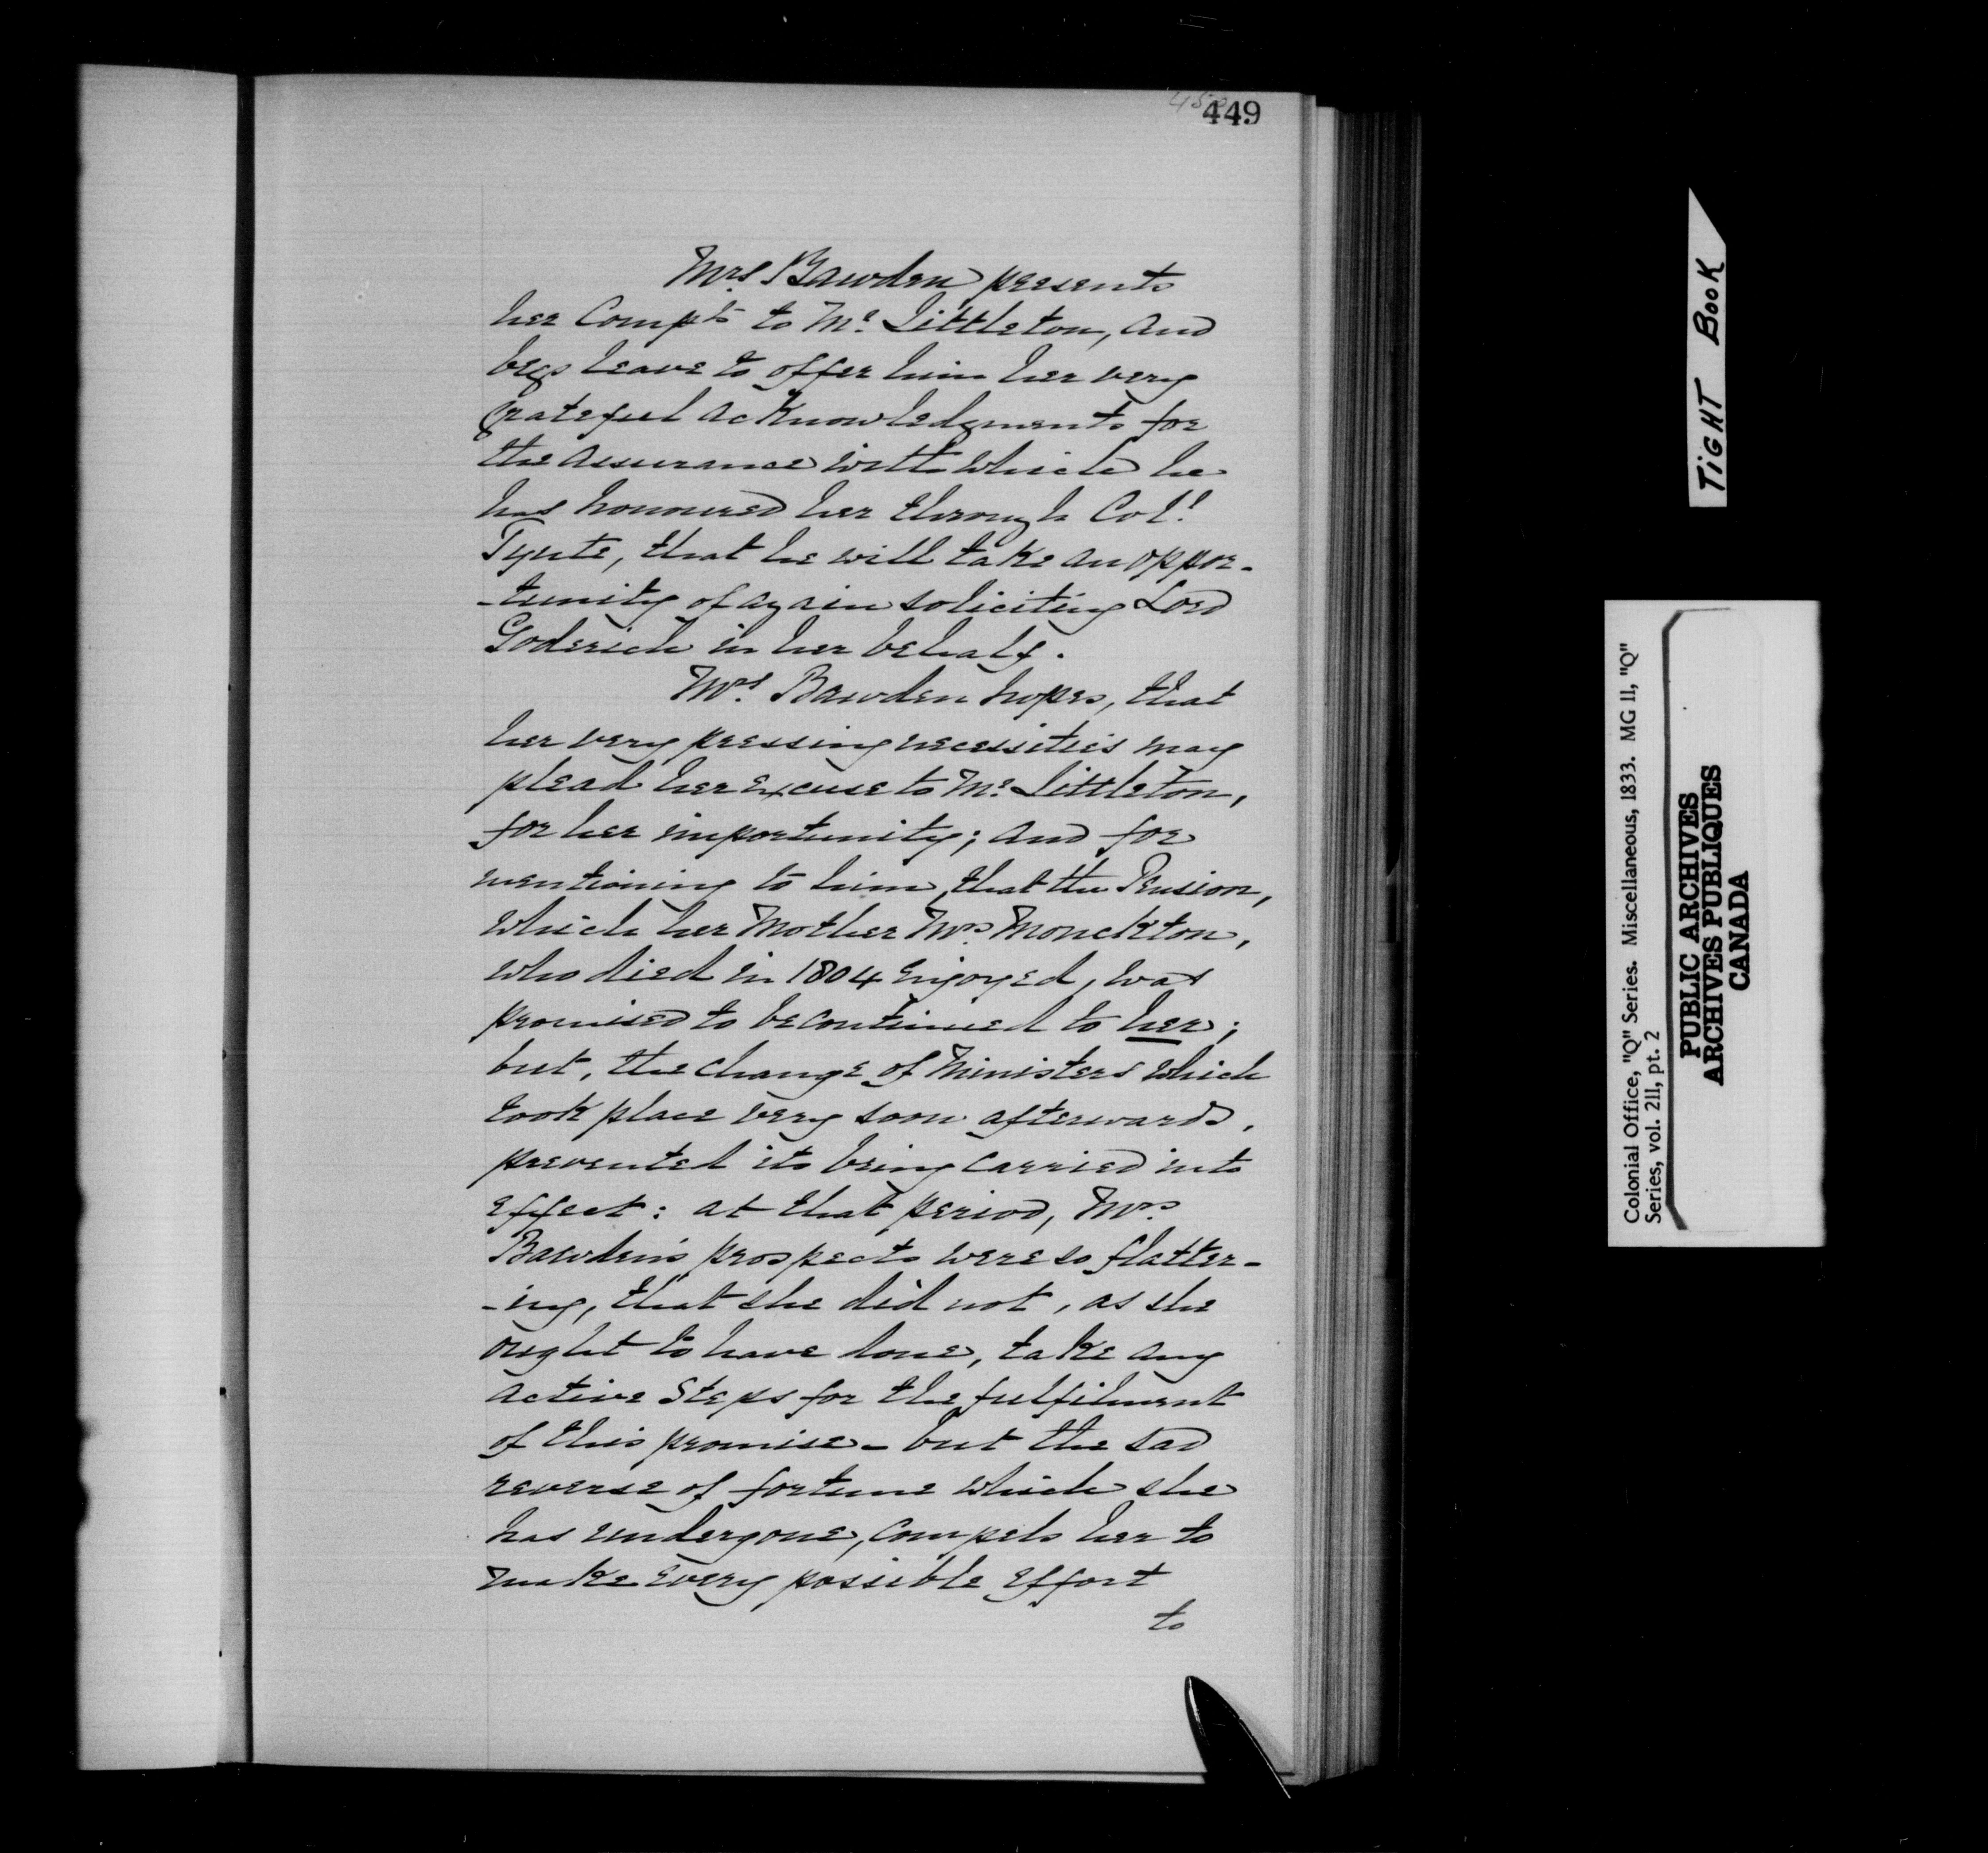 449
Mrs Bawden presents
her Compts to Mr. Littleton, and
begs leave to offer him her very
grateful acknowledgments for
the assurance with which he
has honoured her through Coll.
Tynte, that he will take an oppor-
-tunity of again soliciting Lord
Goderich in her behalf.
Mrs. Bawden hopes, that
her very pressing necessities may
plead her excuse to Mr. Littleton,
for her importunity; and for
mentioning to him, that the Pension,
which her Mother Mrs. Monckton,
who died in 1804 enjoyed, was
promised to be continued to her;
but, the change of Ministers which
took place very soon afterwards,
prevented its being carried into
effect: at that period, Mrs.
Bawden's prospects were so flatter-
-ing, that she did not, as she
ought to have done, take any
active steps for the fulfilment
of this promise - but the sad
reverse of fortune which she
has undergone, compels her to
make every possible effort
to
TIGHT BOOK
Colonial Office, "Q" Series. Miscellaneous, 1833. MG 11, "Q"
Series, vol. 211, pt. 2
PUBLIC ARCHIVES
ARCHIVES PUBLIQUES
CANADA